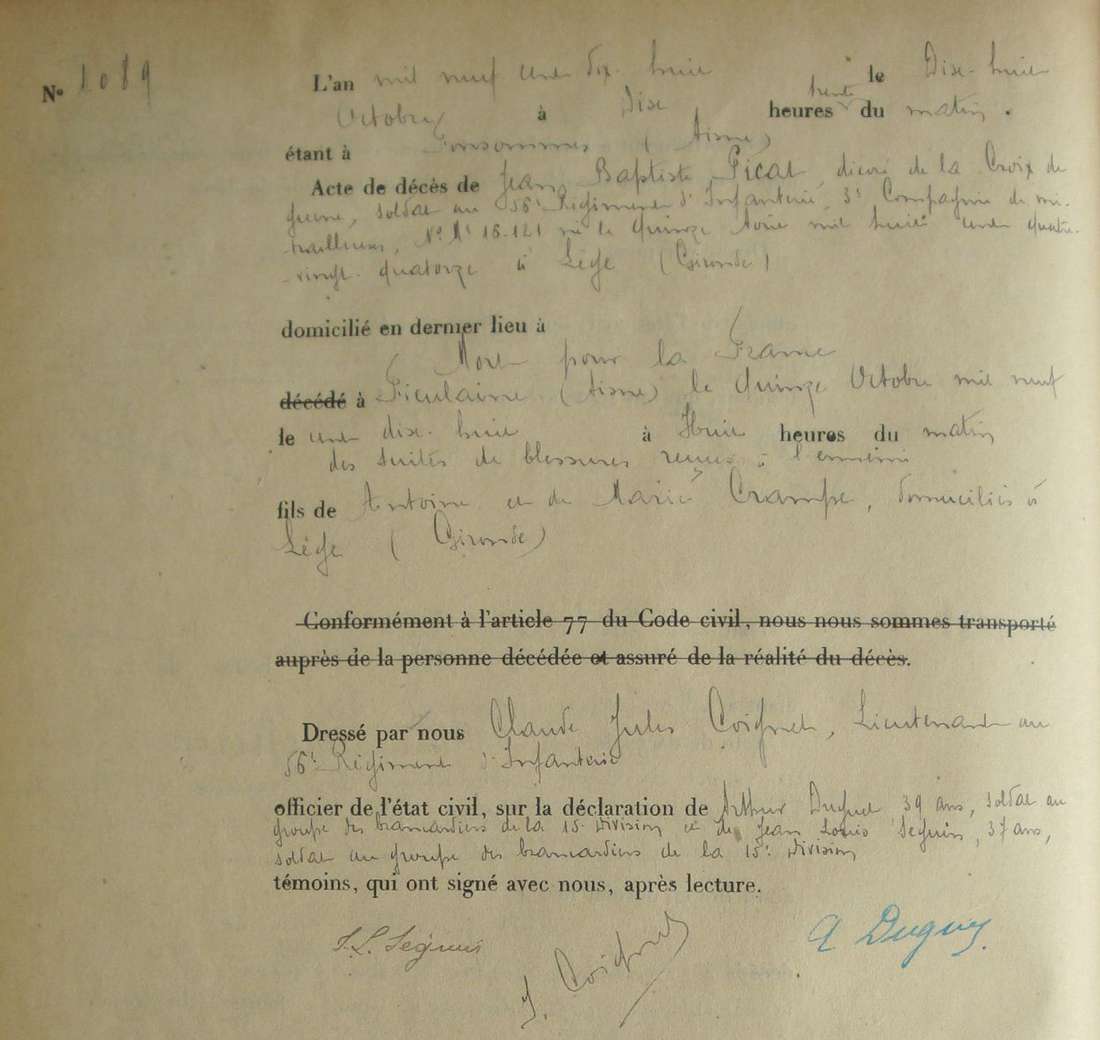 N° 1089
L'an mil neuf cent dix-huit le Dix-huit
Octobre à Dix heures trente du matin.
étant à Fonsommes (Aisne)
Acte de décès de Jean Baptiste Picat, décoré de la Croix de
guerre, soldat au 56e Régiment d'Infanterie, 3e Compagnie de mi-
trailleuses, No Mle 16.121 né le Quinze Août mil huit cent quatre-
-vingt-quatorze à Lège (Gironde)
domicilié en dernier lieu à
Mort pour la France
décédé à Fieulaine (Aisne) le Quinze Octobre mil neuf
le cent dix-huit à Huit heures du matin
des suites de blessures reçues à l'ennemi
fils de Antoine et de Marie Crampe, domiciliés à
Lège (Gironde)
Conformément à l'article 77 du Code civil, nous nous sommes transporté
auprès de la personne décédée et assuré de la réalité du décès.
Dressé par nous Claude Jules Coignet, Lieutenant au
56e Régiment d'Infanterie
officier de l'état civil, sur la déclaration de Arthur 39 ans, soldat au
groupe des brancardiers de la 15e Division et de Jean Louis Seguin, 37 ans,
soldat au groupe des brancardiers de la 15e Division
témoins, qui ont signé avec nous, après lecture.
J. L. Seguin
J. Coignet
A Duguey